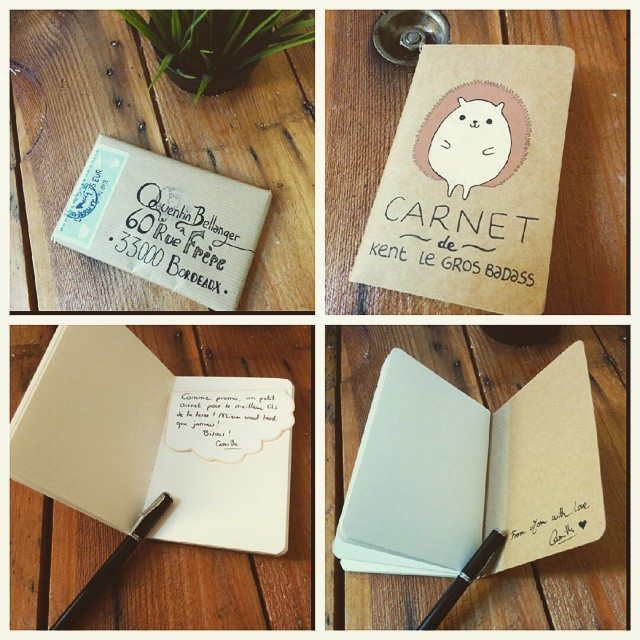 Quentin Bellanger
60 Rue Frère
33000 BORDEAUX.
CARNET
de
Kent LE GROS BADASS
Comme promis, un petit
carnet pour le meilleur fils
de la terre! Mieux vaut tard
que jamais!
Bisous!
Camille
with love
Camille